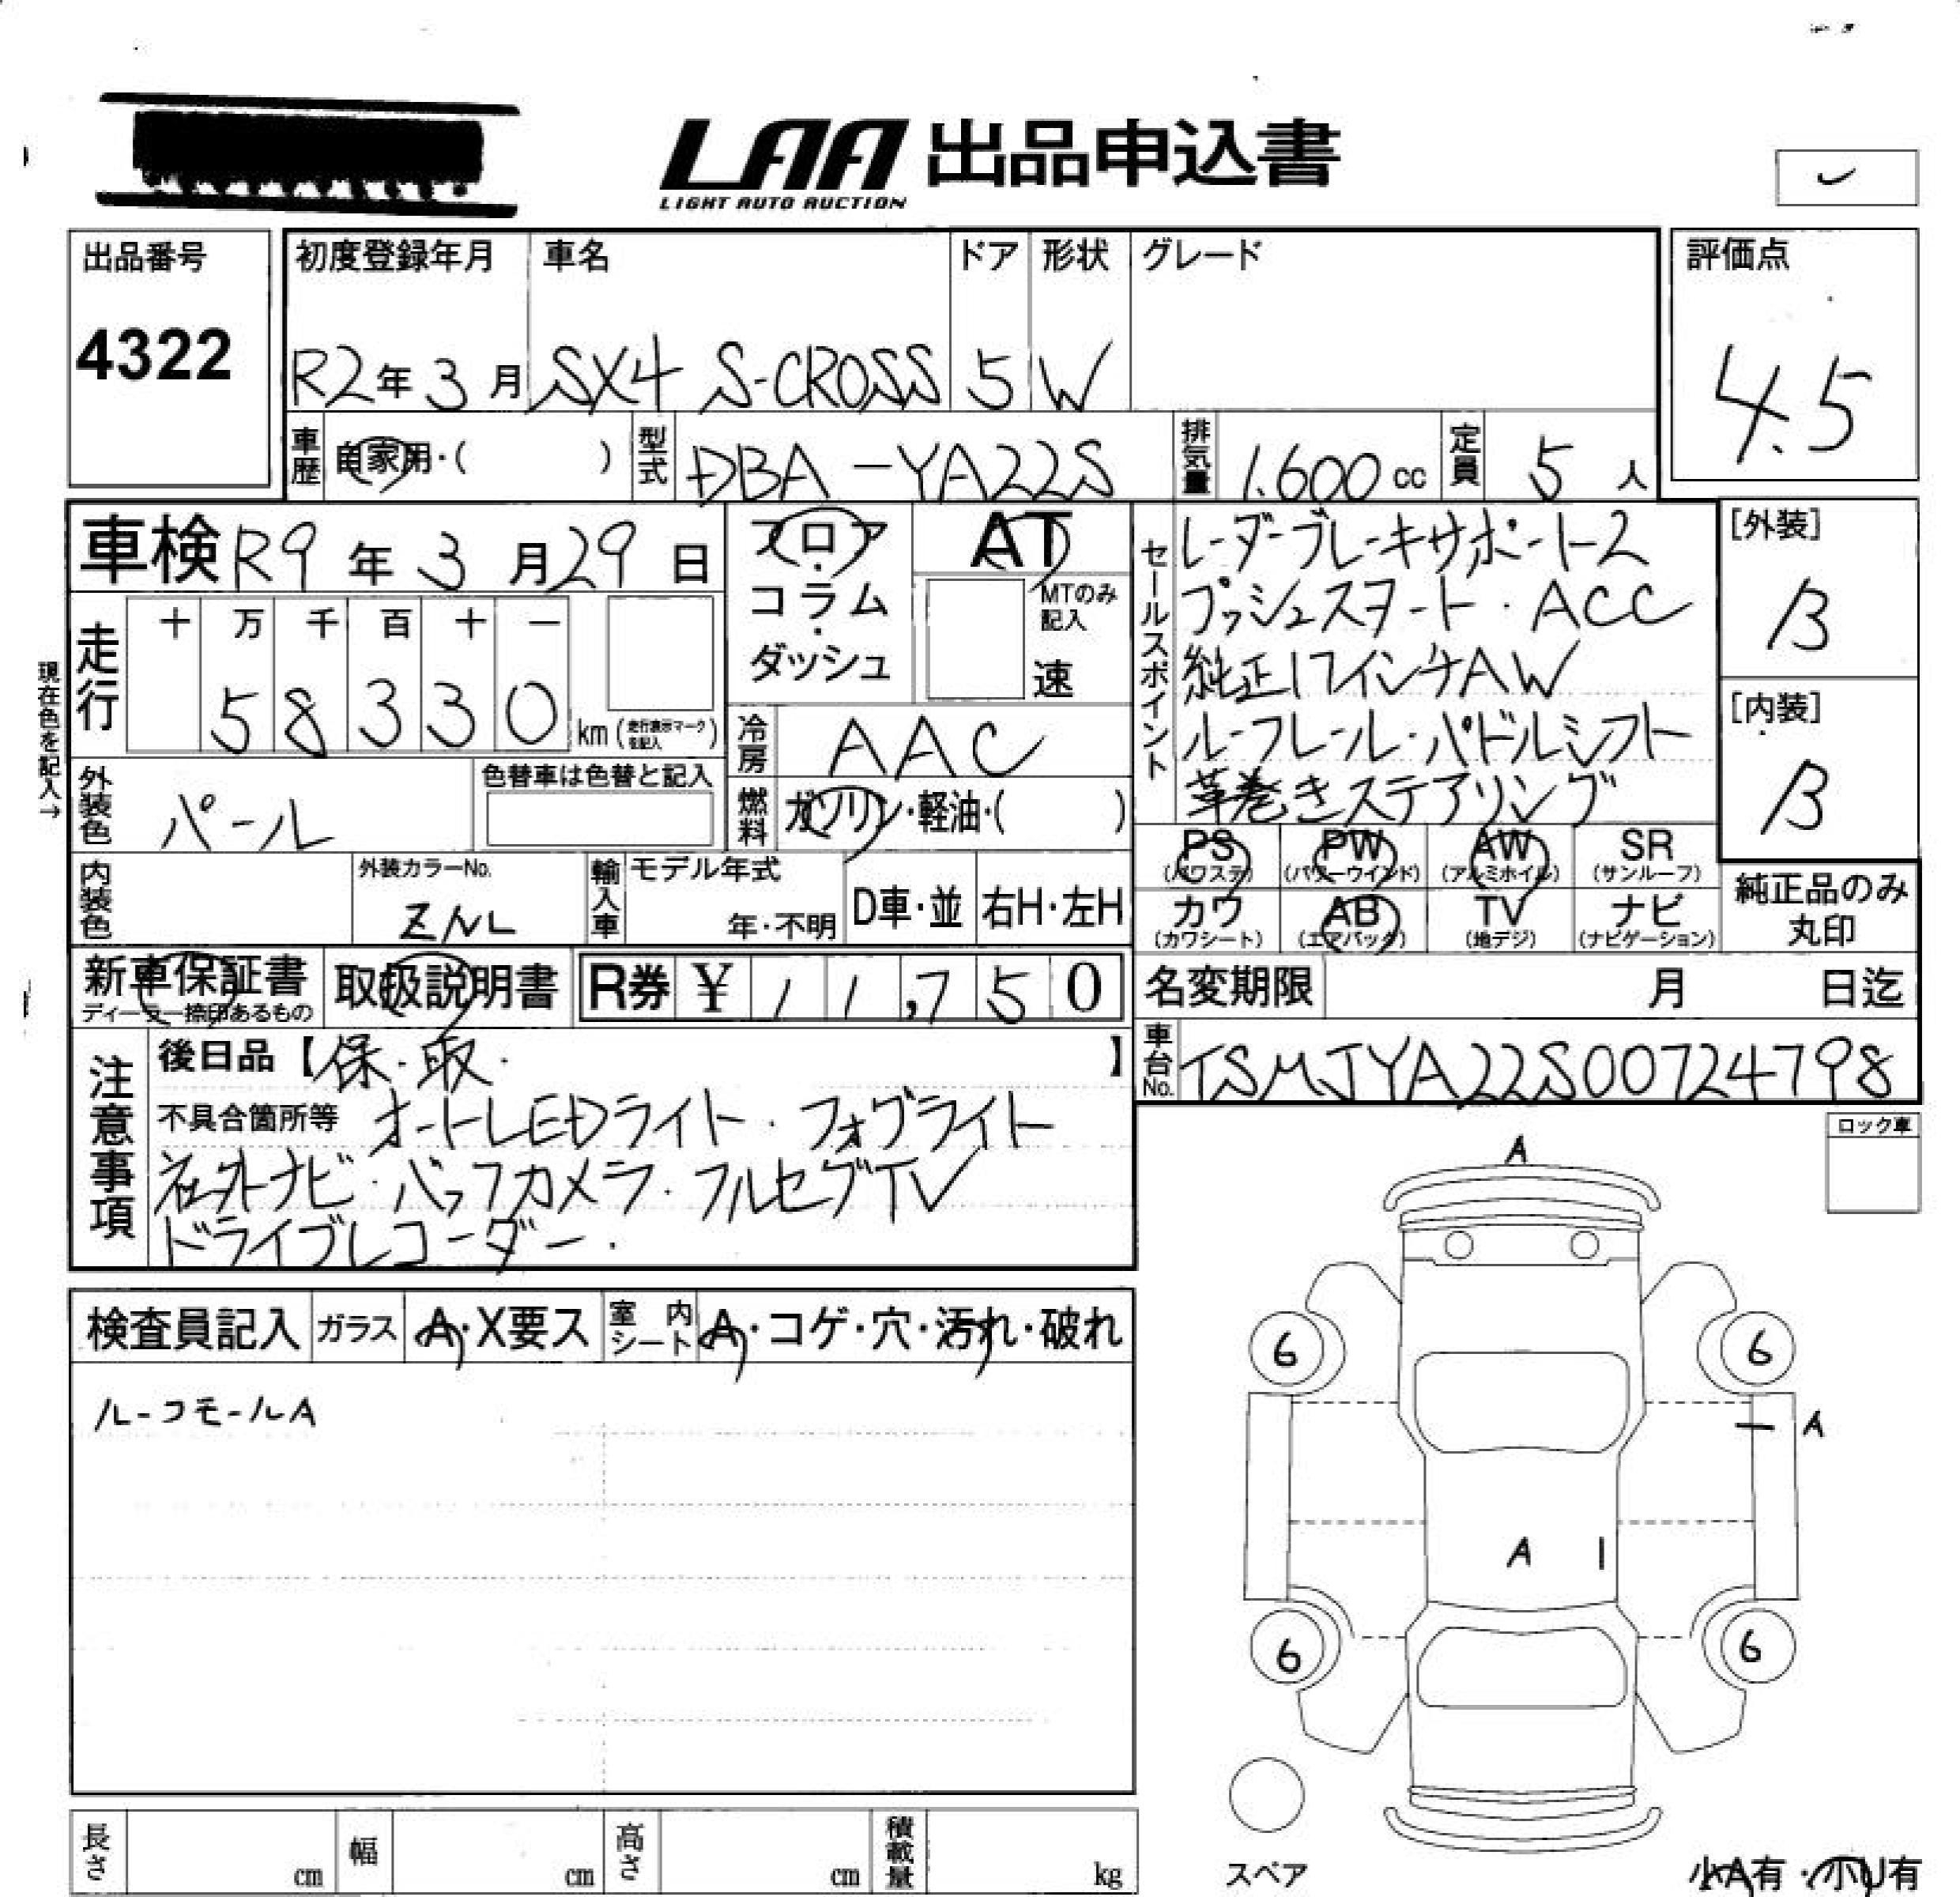 LAA 出品申込書
LIGHT AUTO AUCTION
出品番号
4322
初度登録年月
R2年3月
車名
SX4 S-CROSS
ドア
5
形状
W
グレード
評価点
4.5
車歴 自家用・( )
型式 DBA-YA22S
排気量 1.600cc
定員 5人
車検 R9年3月29日
フロア・コラム・ダッシュ
AT
MTのみ記入
速
走行
十 万 千 百 十 一
5 8 3 3 0 km (走行表示マークを記入)
現在色を記入→
冷房 AAC
外装色 パール
色替車は色替と記入
燃料 ガソリン・軽油・( )
内装色
外装カラーNo.
ZNL
輸入車 モデル年式
年・不明
D車・並
右H・左H
セールスポイント
レーダーブレーキサポート2
プッシュスタート・ACC
純正17インチAW
ルーフレール・パドルシフト
革巻きステアリング
[外装]
B
[内装]
B
PS AW PW SR
(パワステ) (パワーウインド) (アルミホイル) (サンルーフ)
カワ AB TV ナビ
(カワシート) (エアバック) (地デジ) (ナビゲーション)
純正品のみ
丸印
新車保証書
ディーラー捺印あるもの
取扱説明書
R券 ¥ 11,750
名変期限 月 日迄
車台No. TSMJYA22S00724798
注意事項
後日品【保・取・】
不具合箇所等 オートLEDライト・フォグライト
社外ナビ・バックカメラ・フルセグTV
ドライブレコーダー・
ロック車
検査員記入 ガラス A・X要ス 室内シート A・コゲ・穴・汚れ・破れ
ルーフモールA
A
6 6
A
A
6 6
スペア
長さ cm 幅 cm 高さ cm 積載量 kg
小A有・小U有